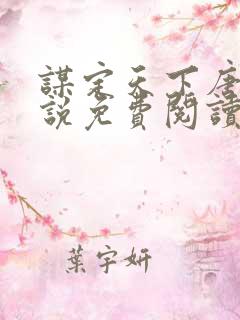 謀定天下唐
說免費閱讀
葉宇妍